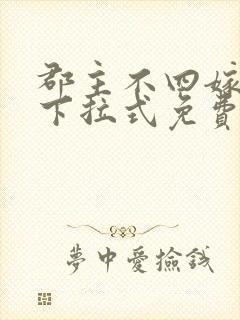 郡主不四嫁
下拉式免費
夢中愛撿錢